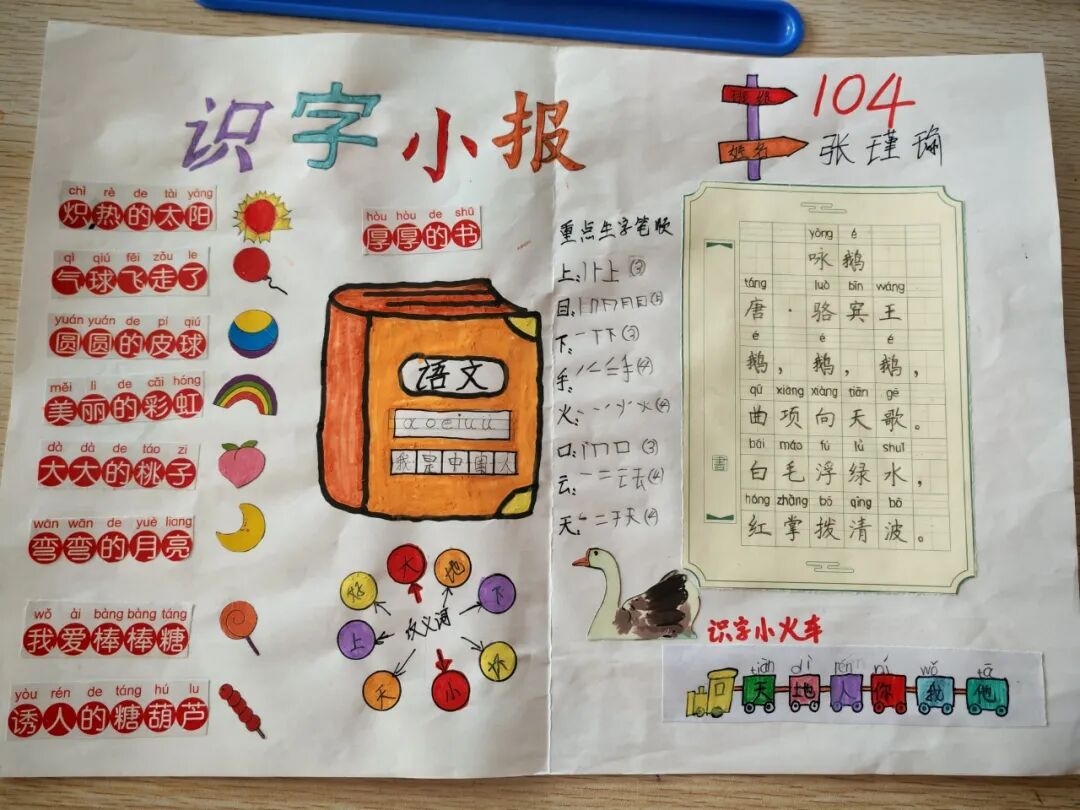 识字小报
班级 104
姓名 张瑾瑜
chì rè de tài yáng
炽热的太阳
qì qiú fēi zǒu le
气球飞走了
yuán yuán de pí qiú
圆圆的皮球
měi lì de cǎi hóng
美丽的彩虹
dà dà de táo zi
大大的桃子
wān wān de yuè liang
弯弯的月亮
wǒ ài bàng bàng táng
我爱棒棒糖
yòu rén de táng hú lu
诱人的糖葫芦
hòu hòu de shū
厚厚的书
语文
a o e i u ü
我是中国人
反义词
大
地
下
坏
小
天
上
好
重点生字笔顺
上: 丨⺊上 (3)
目: 丨冂冃月目 (5)
下: 一丅下 (3)
手: 手 (4)
火: 火 (4)
口: 丨冂口 (3)
云: 一二云云 (4)
天: 一二于天 (4)
yǒng é
咏鹅
táng luò bīn wáng
唐·骆宾王
é é é
鹅，鹅，鹅，
qū xiàng xiàng tiān gē
曲项向天歌。
bái máo fú lǜ shuǐ
白毛浮绿水，
hóng zhǎng bō qīng bō
红掌拨清波。
書
识字小火车
tiān dì rén nǐ wǒ tā
天地人你我他